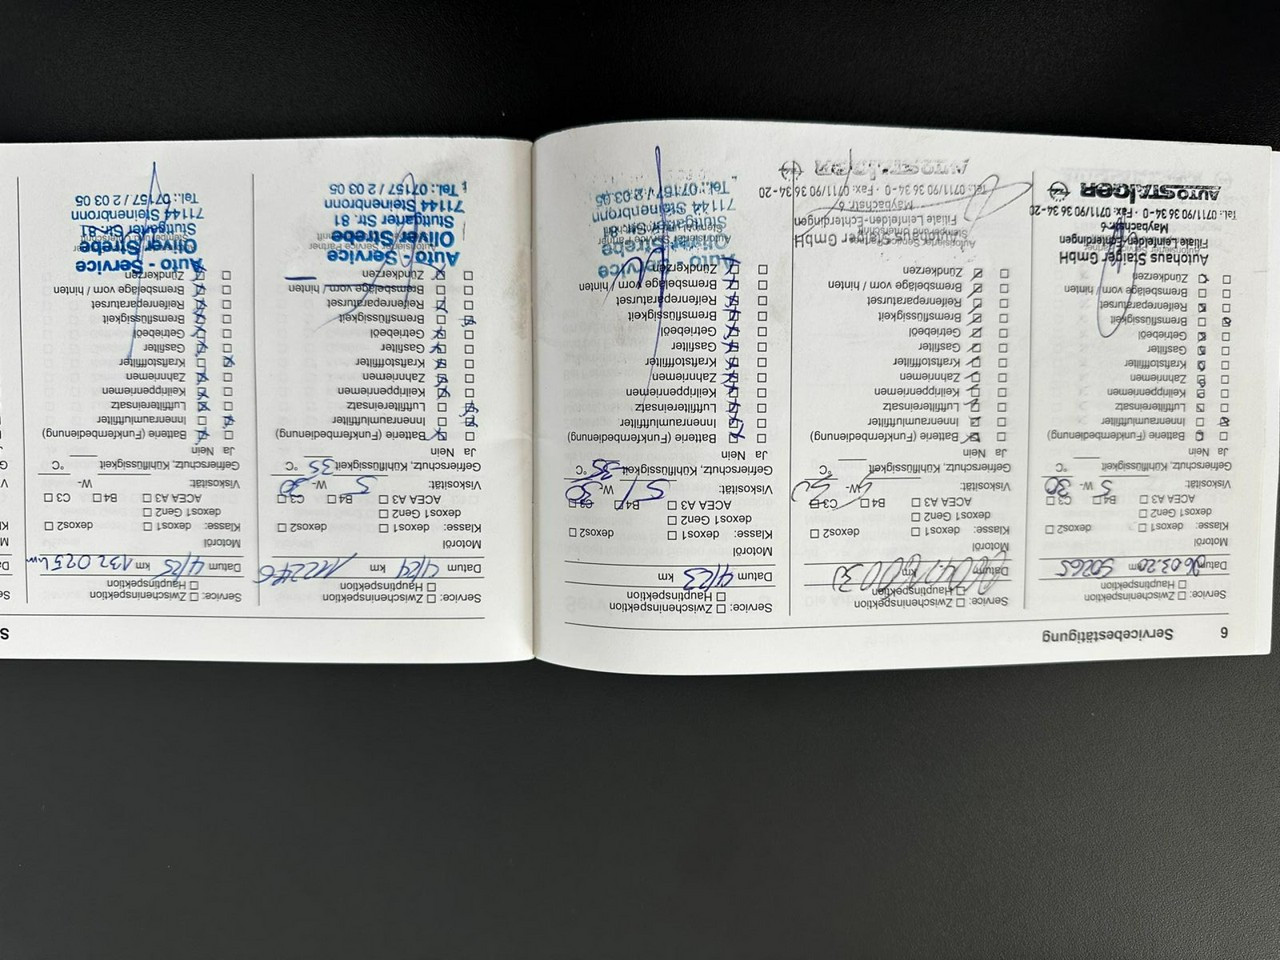 6 Servicebestätigung
Service: Zwischeninspektion
Hauptinspektion
Datum 06.03.20 km 50265
Motoröl
Klasse: dexos1 dexos2
dexos1 Gen2
ACEA A3 B4 C3
Viskosität: 5 W- 30
Gefrierschutz, Kühlflüssigkeit °C
Ja Nein
Batterie (Funkfernbedienung)
Innenraumluftfilter
Luftfiltereinsatz
Keilrippenriemen
Zahnriemen
Kraftstofffilter
Gasfilter
Getriebeöl
Bremsflüssigkeit
Reifenreparaturset
Bremsbeläge vorn / hinten
Zündkerzen
Autohaus Staiger GmbH
Filiale Leinfelden-Echterdingen
Maybachstr. 6
Tel. 0711/90 36 34 - 0 · Fax: 0711/90 36 34-20
AUTOSTAIGER
Service: Zwischeninspektion
Hauptinspektion
Datum km
Motoröl
Klasse: dexos1 dexos2
dexos1 Gen2
ACEA A3 B4 C3
Viskosität: W-
Gefrierschutz, Kühlflüssigkeit °C
Ja Nein
Batterie (Funkfernbedienung)
Innenraumluftfilter
Luftfiltereinsatz
Keilrippenriemen
Zahnriemen
Kraftstofffilter
Gasfilter
Getriebeöl
Bremsflüssigkeit
Reifenreparaturset
Bremsbeläge vorn / hinten
Zündkerzen
Autohaus Staiger GmbH
Filiale Leinfelden-Echterdingen
Maybachstr. 6
Tel. 0711/90 36 34 - 0 · Fax: 0711/90 36 34-20
AUTOSTAIGER
Service: Zwischeninspektion
Hauptinspektion
Datum 4/23 km
Motoröl
Klasse: dexos1 dexos2
dexos1 Gen2
ACEA A3 B4 C3
Viskosität: 5 W- 30
Gefrierschutz, Kühlflüssigkeit 35 °C
Ja Nein
Batterie (Funkfernbedienung)
Innenraumluftfilter
Luftfiltereinsatz
Keilrippenriemen
Zahnriemen
Kraftstofffilter
Gasfilter
Getriebeöl
Bremsflüssigkeit
Reifenreparaturset
Bremsbeläge vorn / hinten
Zündkerzen
Auto - Service
Oliver Strebe
Stuttgarter Str. 81
71144 Steinenbronn
Tel.: 07157 / 2 03 05
Service: Zwischeninspektion
Hauptinspektion
Datum 4/24 km 112246
Motoröl
Klasse: dexos1 dexos2
dexos1 Gen2
ACEA A3 B4 C3
Viskosität: 5 W- 30
Gefrierschutz, Kühlflüssigkeit 35 °C
Ja Nein
Batterie (Funkfernbedienung)
Innenraumluftfilter
Luftfiltereinsatz
Keilrippenriemen
Zahnriemen
Kraftstofffilter
Gasfilter
Getriebeöl
Bremsflüssigkeit
Reifenreparaturset
Bremsbeläge vorn / hinten
Zündkerzen
Auto - Service
Oliver Strebe
Stuttgarter Str. 81
71144 Steinenbronn
Tel.: 07157 / 2 03 05
Service: Zwischeninspektion
Hauptinspektion
Datum 4/25 km 132025 km
Motoröl
Klasse: dexos1 dexos2
dexos1 Gen2
ACEA A3 B4 C3
Viskosität: W-
Gefrierschutz, Kühlflüssigkeit °C
Ja Nein
Batterie (Funkfernbedienung)
Innenraumluftfilter
Luftfiltereinsatz
Keilrippenriemen
Zahnriemen
Kraftstofffilter
Gasfilter
Getriebeöl
Bremsflüssigkeit
Reifenreparaturset
Bremsbeläge vorn / hinten
Zündkerzen
Auto - Service
Oliver Strebe
Stuttgarter Str. 81
71144 Steinenbronn
Tel.: 07157 / 2 03 05